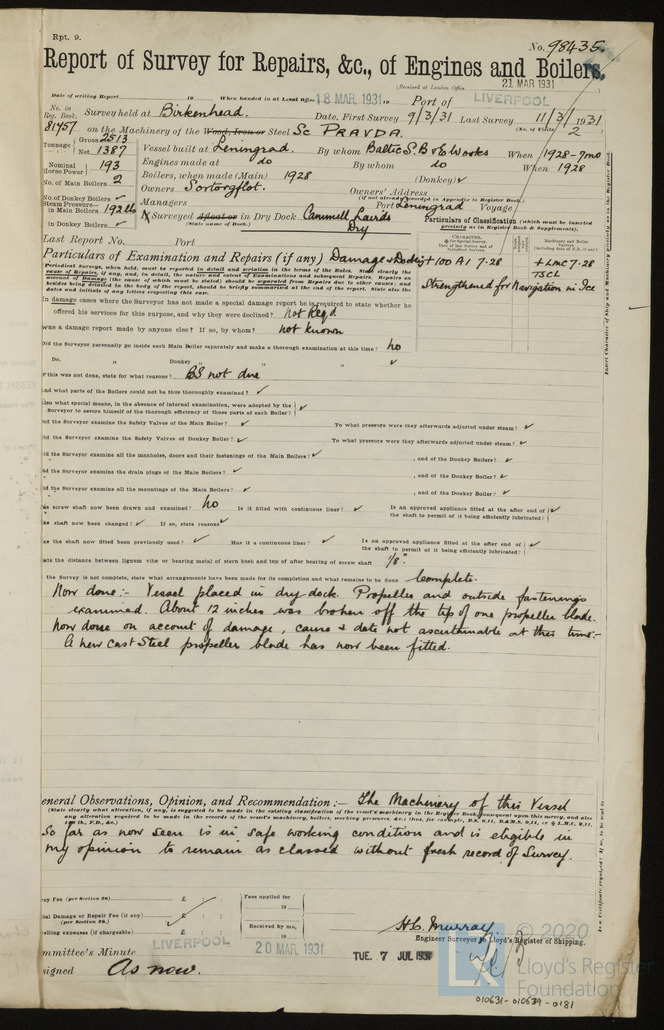 Rpt. 9.
No. 98435.
Report of Survey for Repairs, &c., of Engines and Boilers.
(Received at London Office 21 MAR 1931
Date of writing Report 19 When handed in at Local Office 18 MAR. 1931 19 Port of LIVERPOOL
No. in Reg. Book. Survey held at Birkenhead. Date, First Survey 9/3/31 Last Survey 11/3/1931
81457 on the Machinery of the Wood, Iron or Steel Sc PRAVDA. (No. of Visits 2
Tonnage Gross 2513 Net 1387 Vessel built at Leningrad. By whom Baltic S.B & E. Works When 1928-7mo
Nominal Horse Power 193 Engines made at do By whom do When 1928
No. of Main Boilers 2 Boilers, when made (Main) 1928 (Donkey) ✓
No. of Donkey Boilers ✓ Owners Sovtorgflot. Owners' Address
(if not already recorded in Appendix to Register Book.)
Steam Pressure in Main Boilers 192 lbs Managers Port Leningrad Voyage
in Donkey Boilers ✓ If Surveyed Afloat or in Dry Dock Cammell Lairds Dry
(State name of Dock.)
Particulars of Classification (which must be inserted precisely as in Register Book & Supplements).
Last Report No. Port
Particulars of Examination and Repairs (if any) Damage & Docking
+100 A1 7-28 +LMC 7-28
TSCL
Strengthened for Navigation in Ice
In damage cases where the Surveyor has not made a special damage report he is required to state whether he
offered his services for this purpose, and why they were declined? Not Reqd
Was a damage report made by anyone else? If so, by whom? not known
Did the Surveyor personally go inside each Main Boiler separately and make a thorough examination at this time? No
Do. " Donkey " " " ✓
If this was not done, state for what reasons? BS not due
And what parts of the Boilers could not be thus thoroughly examined? ✓
Also what special means, in the absence of internal examination, were adopted by the
Surveyor to assure himself of the thorough efficiency of those parts of each Boiler? ✓
Did the Surveyor examine the Safety Valves of the Main Boiler? ✓ To what pressure were they afterwards adjusted under steam? ✓
Did the Surveyor examine the Safety Valves of Donkey Boiler? ✓ To what pressure were they afterwards adjusted under steam? ✓
Did the Surveyor examine all the manholes, doors and their fastenings of the Main Boilers? ✓ , and of the Donkey Boiler? ✓
Did the Surveyor examine the drain plugs of the Main Boilers? ✓ , and of the Donkey Boiler? ✓
Did the Surveyor examine all the mountings of the Main Boilers? ✓ , and of the Donkey Boiler? ✓
Has screw shaft now been drawn and examined? No Is it fitted with continuous liner? ✓ Is an approved appliance fitted at the after end of
the shaft to permit of it being efficiently lubricated? ✓
Has shaft now been changed? ✓ If so, state reasons ✓
Has the shaft now fitted been previously used? ✓ Has it a continuous liner? ✓ Is an approved appliance fitted at the after end of
the shaft to permit of it being efficiently lubricated? ✓
State the distance between lignum vitæ or bearing metal of stern bush and top of after bearing of screw shaft 1/8".
If the Survey is not complete, state what arrangements have been made for its completion and what remains to be done Complete.
Now done:- Vessel placed in dry dock. Propeller and outside fastenings
examined. About 12 inches was broken off the tip of one propeller blade.
Now done on account of damage, cause & date not ascertainable at this time:-
A new cast Steel propeller blade has now been fitted.
General Observations, Opinion, and Recommendation:- The Machinery of this Vessel
(State clearly what alteration, if any, is suggested to be made in the existing classification of the vessel's machinery in the Register Book consequent upon this survey, and also
any alteration required to be made in the records of the vessel's machinery, boilers, working pressures, &c.; thus, for example, B.S. 9,11, B.&M.S. 9,11, or L.M.C. 9,11,
So far as now seen is in safe working condition and is eligible in
my opinion to remain as classed without fresh record of Survey.
Survey Fee (per Section 29) £ : : Fees applied for
19
Special Damage or Repair Fee (if any) £ : :
(per Section 29.)
Received by me,
Travelling expenses (if chargeable) £ : : 19
H.C. Murray.
Engineer Surveyor to Lloyd's Register of Shipping.
Committee's Minute LIVERPOOL 20 MAR 1931 TUE. 7 JUL 1931
Assigned As now.
© 2020
Lloyd's Register
Foundation
010631-010639-0181